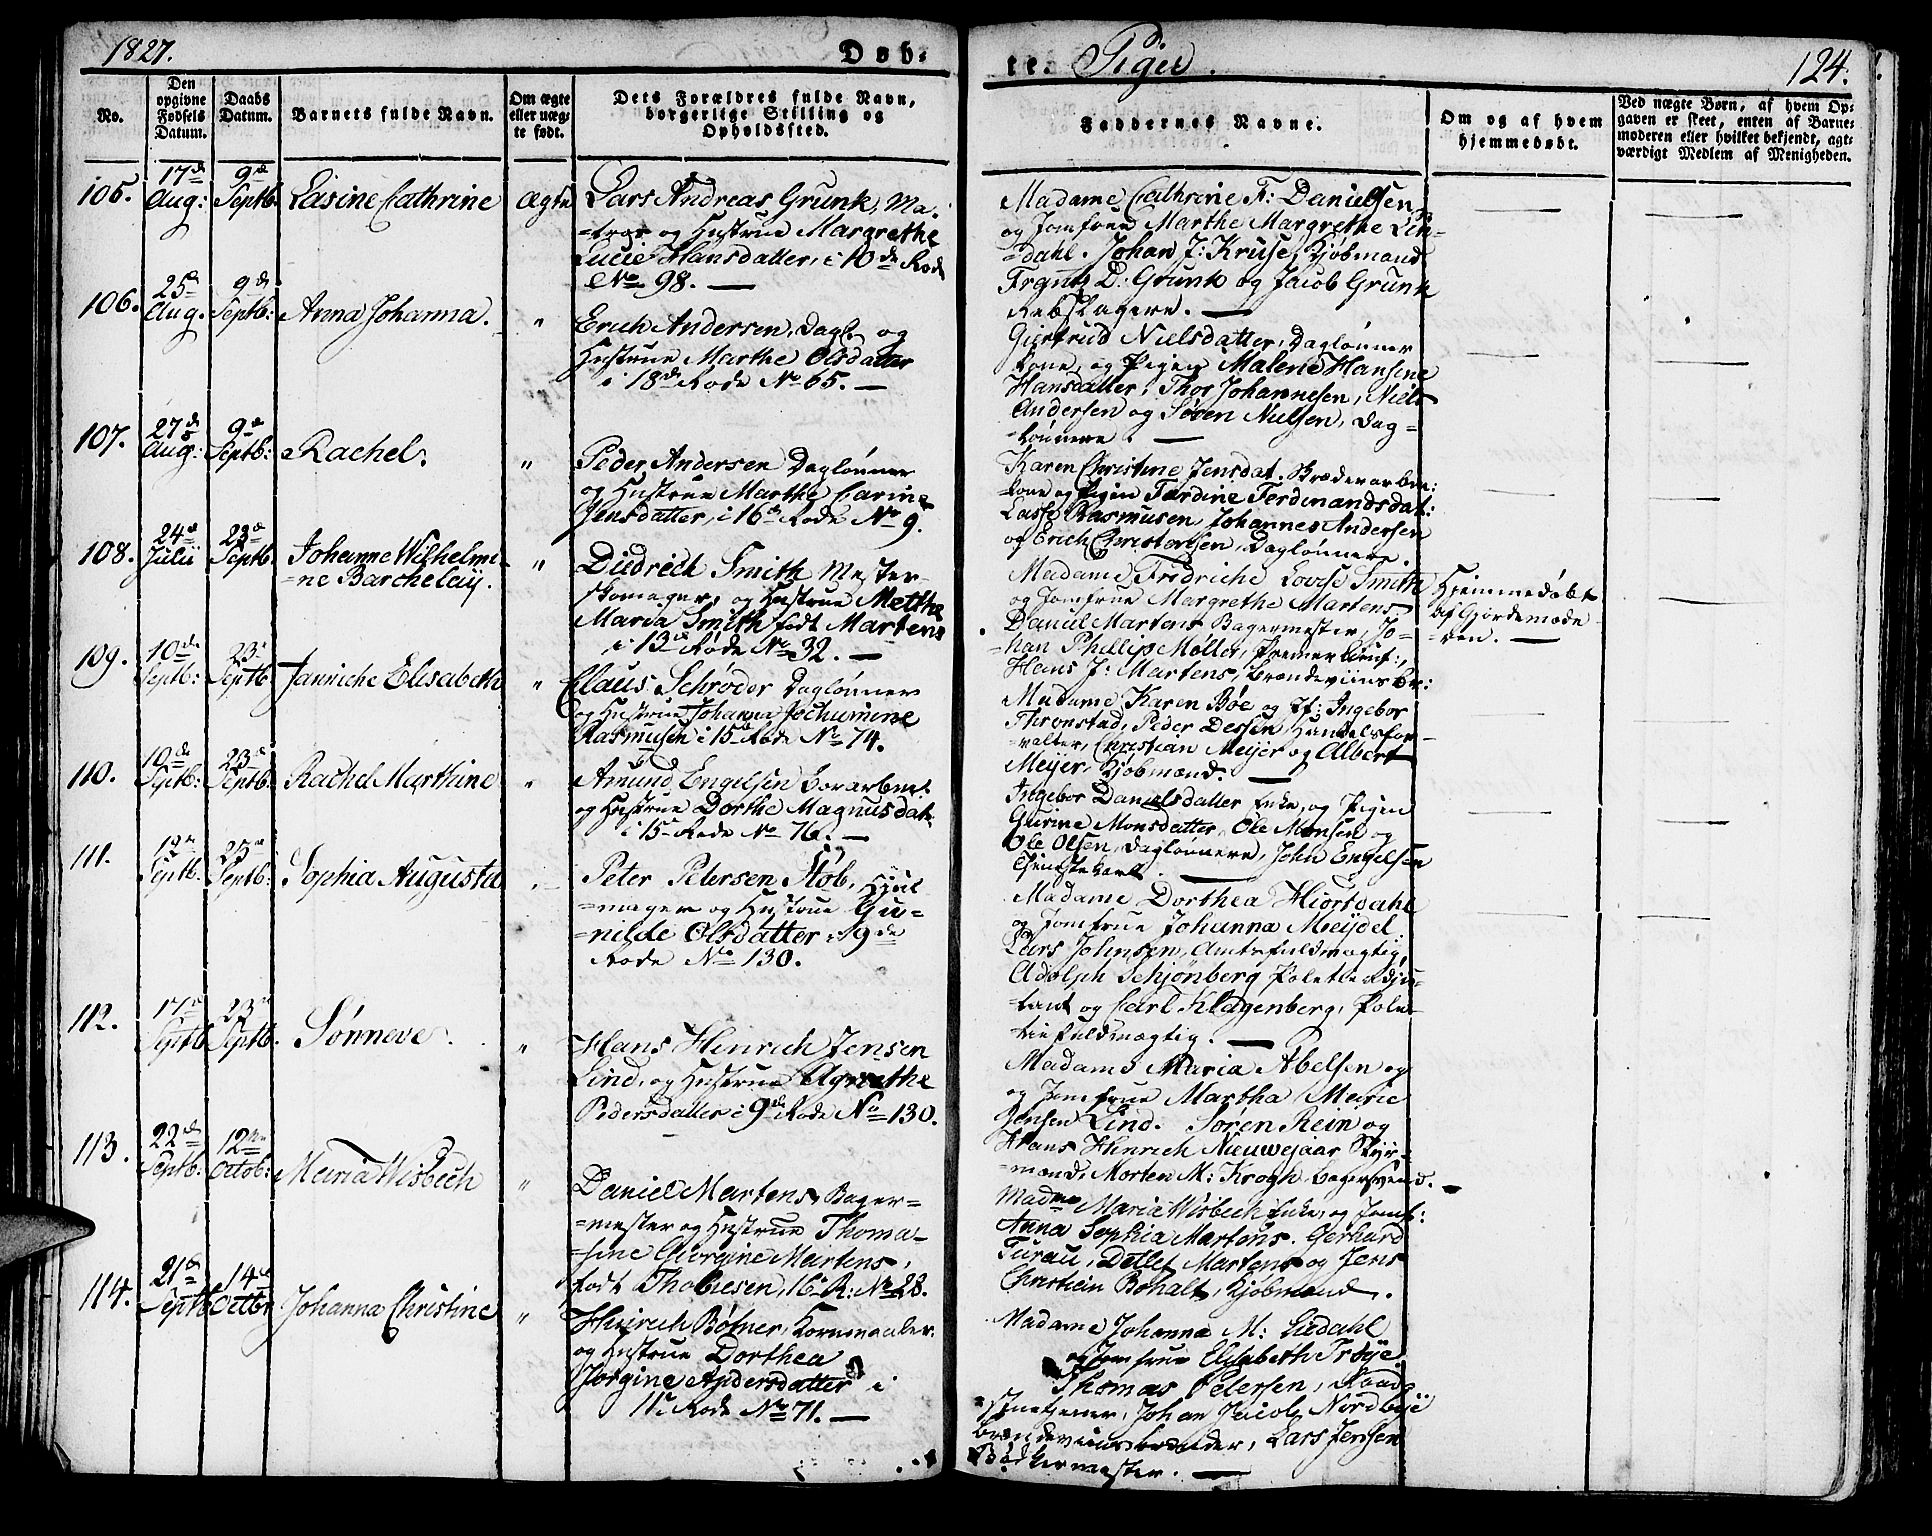 1827.
Døb-
te. Piger.
124.
No.
Den opgivne Fødsels Datum.
Daabs Datum.
Barnets fulde Navn.
Om ægte eller uægte født.
Dets Forældres fulde Navn, borgerlige Stilling og Opholdssted.
Faddernes Navne.
Om og af hvem hjemmedøbt.
Ved uægte Børn, af hvem Opgaven er skeet, enten af Barnemoderen eller hvilket bekjendt, agtværdigt Medlem af Menigheden.
105. 17de Aug: 9de Septb: Lasine Cathrine ægte
Lars Andreas Grunk, Ma-
=tros og Hustrue Margrethe
Lucie Hansdatter, i 10de Rode
No 98. —
Madame Cathrine F: Danielsen,
og Jomfrue Marthe Margrethe Lin-
=dahl. Johan J: Kruse, Kjøbmand
Frantz D: Grunk og Jacob Grunk
Rebslagere. —
106. 25de Aug. 9de Septb: Anna Johanna. "
Erich Andersen, Dagl. og
Hustrue Marthe Olsdatter
i 18de Rode No 65. —
Giertrud Nielsdatter, Daglønner
kone, og Pigen Malene Hansine
Hansdatter, Thor Johannesen, Niels
Andersen og Søren Nielsen, Dag-
=lønnere. —
107. 27de Aug: 9de Septb: Rachel. "
Peder Andersen Daglønner
og Hustrue Marthe Carine
Jensdatter, i 16de Rode No 9.
Karen Christine Jensdat. Brædevarker:
kone og Pigen Tardine Ferdinandsdat:
Lasse Rasmusen, Johannes Andersen
og Erich Christensen, Daglønnere
108. 24de Julii 23de Septb. Johanne Wilhelmi-
=ne Barchelaij. "
Diedrich Smith Mester-
skomager, og Hustrue Metthe
Maria Smith født Martens
i 13de Rode No 32. —
Madame Fridriche Lovise Smith
og Jomfrue Margrethe Martens
Daniel Martens Bagermester, Jo-
=han Phillip Møller, Premier Lieut:,
Hans J: Martens, Brændeviinsbr:
Hjemmedøbt
af Gjordemode-
=ren. —
109. 10de Septb: 23de Septb. Janriche Elisabeth "
Claus Schrøder Daglønner
og Hustrue Johanna Jochumine
Rasmusen i 15de Rode No 74.
Madame Karen Bøe og Jf: Ingebor
Thronstad, Peder Dessen, Handelsfor-
=valter, Christian Meijer og Albert
Meijer, Kjøbmænd. —
110. 10de Septb: 23de Septb: Rachel Marthine "
Amund Engelsen
og Hustrue Dorthe Magnusdat.
i 15de Rode No 76. —
Ingebor Danielsdatter Enke, og Pigen
Gurine Monsdatter, Ole Monsen og
Ole Olsen, Daglønnere, John Engelsen
Tjenstekarl. —
111. 12te Septb. 23de Septb. Sophia Augusta
Peter Petersen Støb, Hjul-
=mager og Hustrue Gu-
=nilde Olsdatter i 9de
Rode No 130.
Madame Dorthea Hiortdahl
og Jomfrue Johanna Meijdel,
Lars Johnsen, Amtsfuldmægtig,
Adolph Schjønberg Politie Adju-
tant og Carl Klagenberg, Poli-
tiefuldmægtig. —
112. 17de Septb 23de Septb. Sønneve. "
Hans Hinrich Jensen
Lind, og Hustrue Agnethe
Pedersdatter i 9de Rode No 130.
Madame Maria Abelsen og
og Jomfrue Martha Marie
Jensen Lind. Søren Rein og
Hans Hinrich Nieuwejaar Styr-
=mænd, Morten M: Krogh, Bagersvend.
113. 22de Septb: 12te Octob: Maria Wisbech "
Daniel Martens, Bager-
=mester og Hustrue Thoma-
=sine Georgine Martens,
født Thobiesen, 16de R: No 28.
Madme Maria Wisbech Enke, og Jomf:
Anna Sophia Martens. Gerhard
Turau, Detlef Martens og Jens
Christian Bohalt, Kjøbmænd.
114. 21de Septb 14de Octbr Johanna Christine "
Hinrich Bøtner, Kornmaaler
og Hustrue Dorthea
Jorgine Andersdatter i
11te Rode No 71. —
Madame Johanna M: Liedahl
og Jomfrue Elisabeth Trøye,
Thomas Petersen, Raad-
=stuetjener, Johan Jacob Nordbye
Brændeviinsbrænder, Lars Jensen
Bødkermester. —